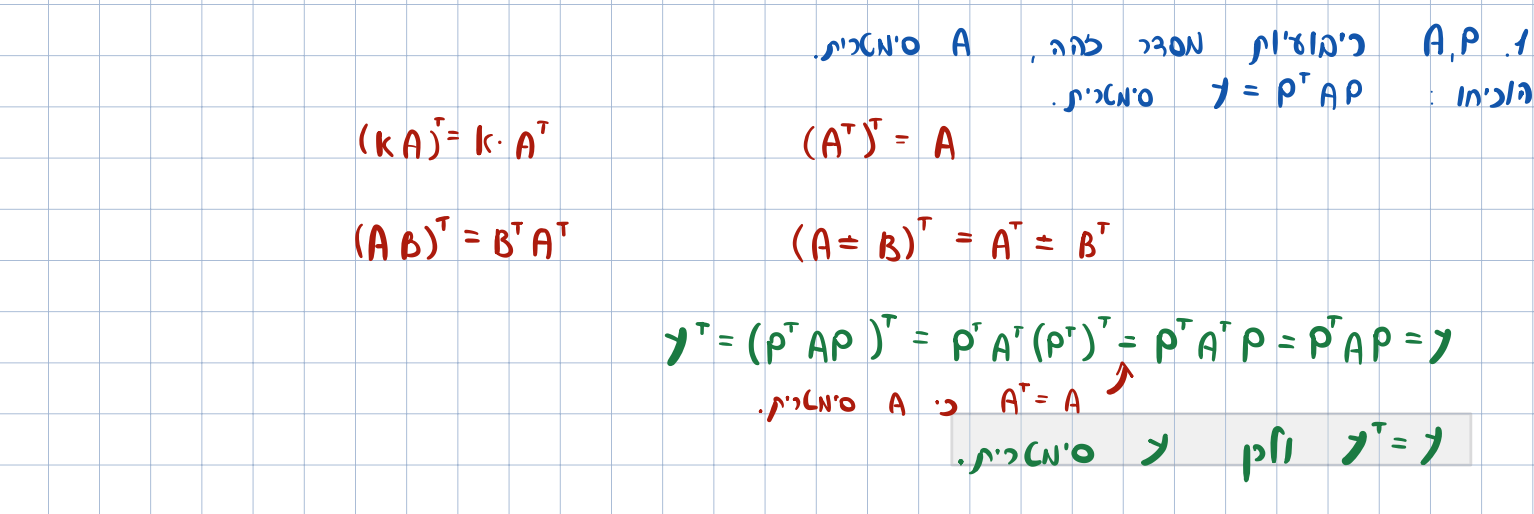 1. A,P ריבועיות מסדר זהה, A סימטרית.
הוכיחו: y = Pᵀ A P סימטרית.
(Aᵀ)ᵀ = A
(kA)ᵀ = k · Aᵀ
(A ± B)ᵀ = Aᵀ ± Bᵀ
(AB)ᵀ = BᵀAᵀ
yᵀ = (PᵀAP)ᵀ = PᵀAᵀ(Pᵀ)ᵀ = PᵀAᵀP = PᵀAP = y
Aᵀ = A כי A סימטרית.
yᵀ = y ולכן y סימטרית.